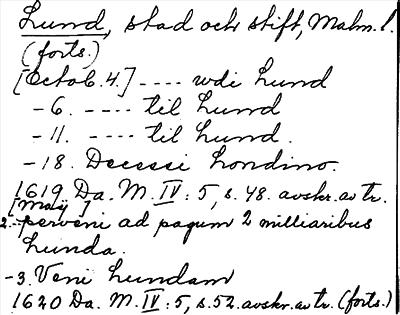 Lund, stad och stift, Malm. l.
(forts.)
[Octob. 4.] ---- udi Lund
- 6. ---- til Lund
- 11. ---- til Lund.
- 18. Decessi Londino.
1619 Da. M. IV: 5, s. 48. avskr. av tr.
[Maij]
2. perveni ad pagum 2 milliaribus
Lunda.
- 3. Veni Lundam
1620 Da. M. IV: 5, s. 52. avskr. av tr. (forts.)